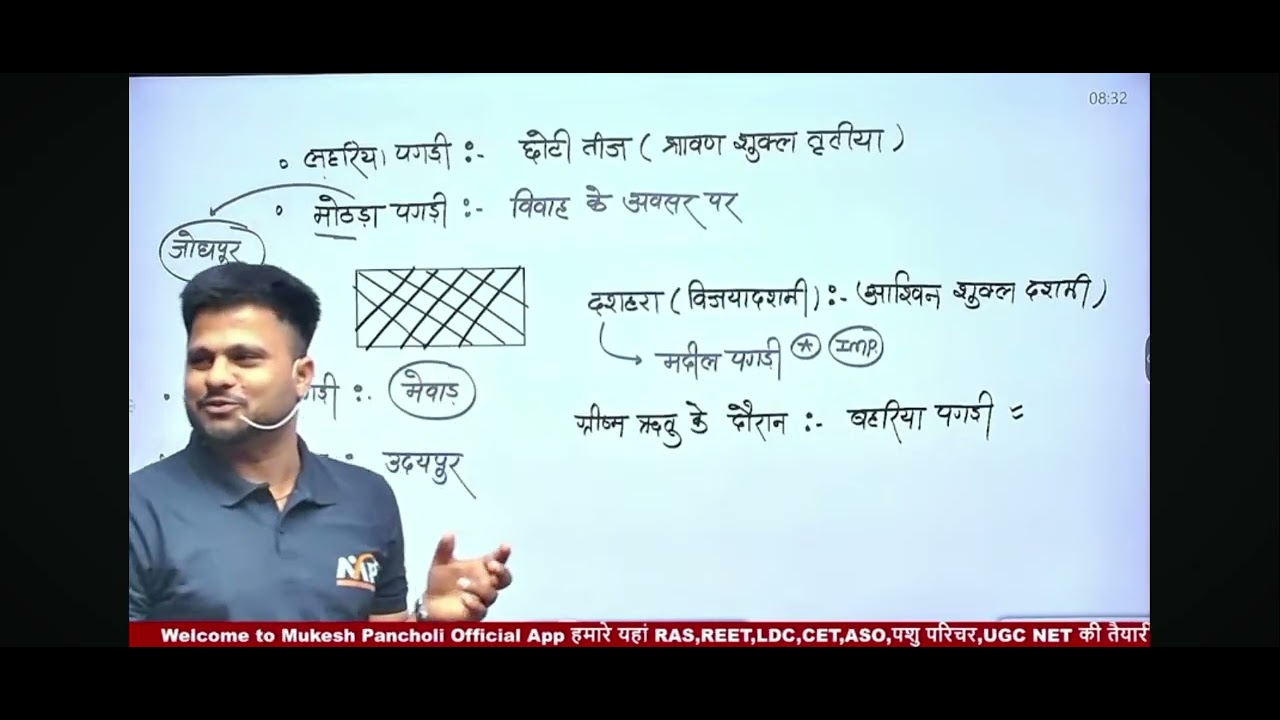 08:32
लहरिया पगड़ी :- छोटी तीज ( श्रावण शुक्ल तृतीया )
मोठड़ा पगड़ी :- विवाह के अवसर पर
जोधपुर
दशहरा ( विजयादशमी ) :- (आश्विन शुक्ल दशमी )
मदील पगड़ी * IMP.
मेवाड़
ग्रीष्म ऋतु के दौरान :- बहरिया पगड़ी =
उदयपुर
Welcome to Mukesh Pancholi Official App हमारे यहां RAS,REET,LDC,CET,ASO,पशु परिचर,UGC NET की तैयारी